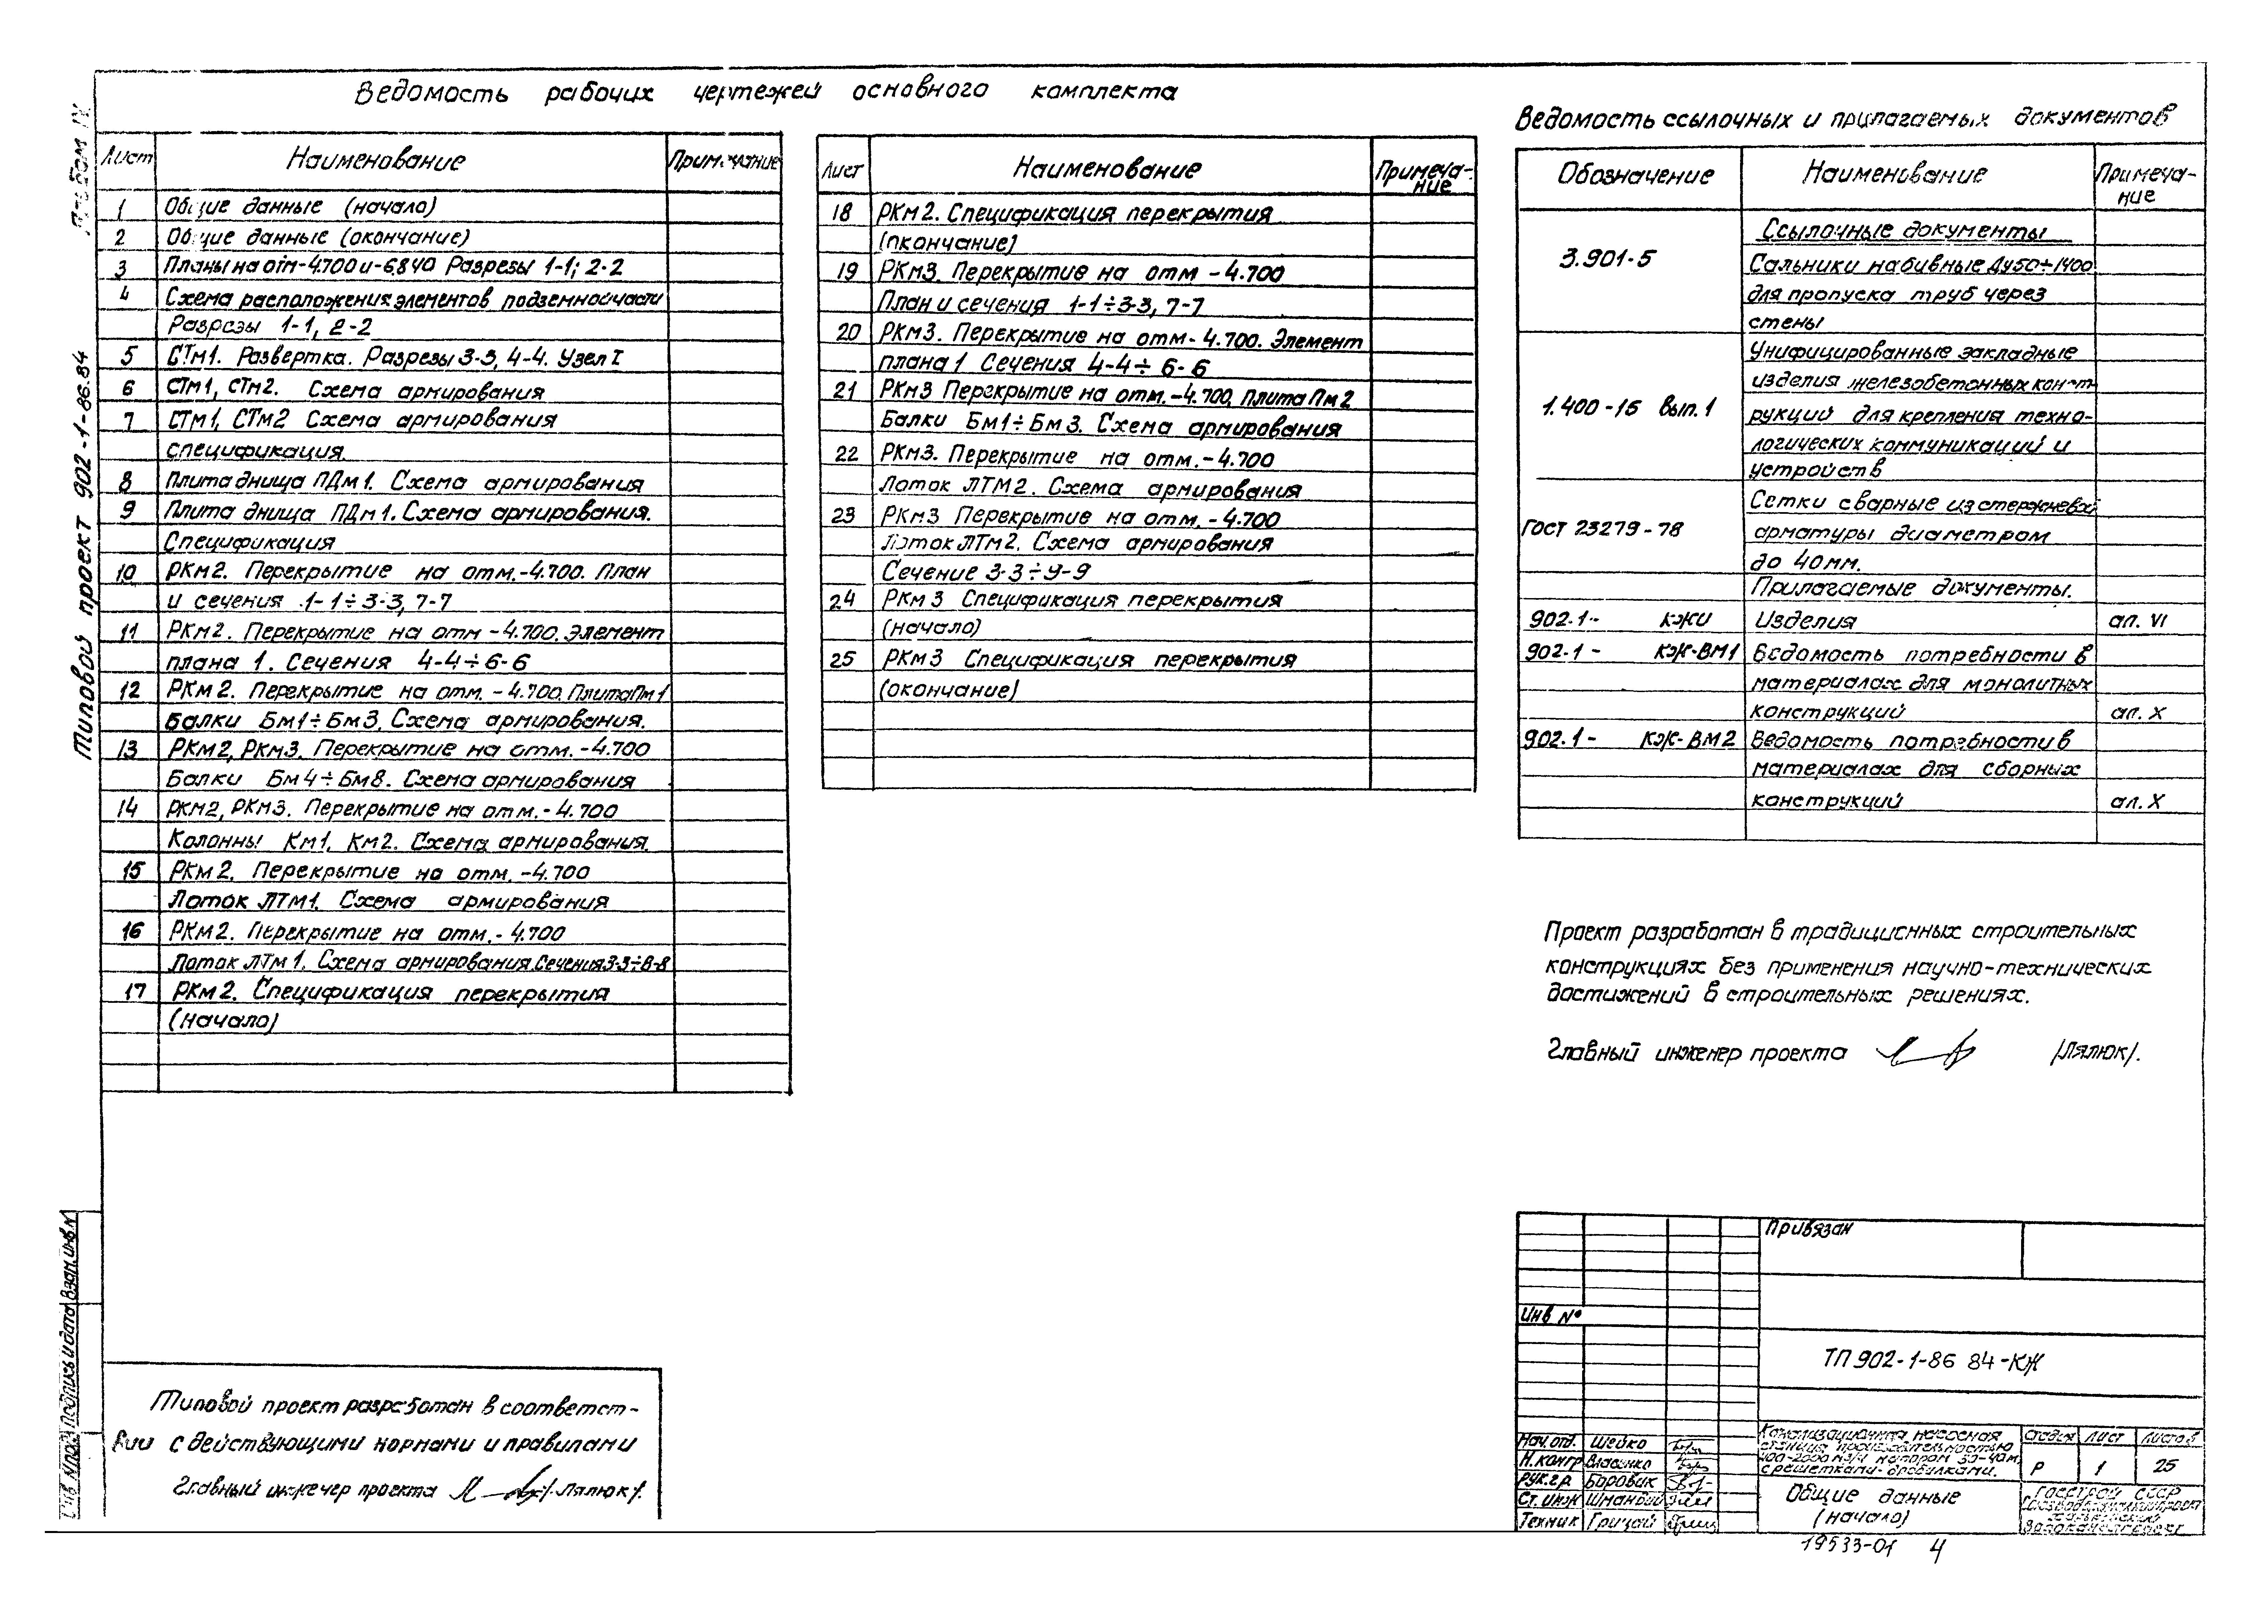 Ведомость рабочих чертежей основного комплекта
Лист Наименование Примечание
1 Общие данные (начало)
2 Общие данные (окончание)
3 Планы на отм-4.700 и-6.840 Разрезы 1-1; 2-2
4 Схема расположения элементов подземной части
Разрезы 1-1, 2-2
5 СТм1. Развертка. Разрезы 3-3, 4-4. Узел I
6 СТм1, СТм2. Схема армирования
7 СТм1, СТм2 Схема армирования
спецификация
8 Плита днища ПДм1. Схема армирования
9 Плита днища ПДм1. Схема армирования.
Спецификация
10 РКм2. Перекрытие на отм.-4.700. План
и сечения 1-1÷3-3, 7-7
11 РКм2. Перекрытие на отм -4.700. Элемент
плана 1. Сечения 4-4÷6-6
12 РКм2. Перекрытие на отм. -4.700. Плита Пм1
Балки Бм1÷Бм3. Схема армирования.
13 РКм2, РКм3. Перекрытие на отм. -4.700
Балки Бм4÷Бм8. Схема армирования
14 РКм2, РКм3. Перекрытие на отм.-4.700
Колонны Км1, Км2. Схема армирования.
15 РКм2. Перекрытие на отм. -4.700
Лоток ЛТм1. Схема армирования
16 РКм2. Перекрытие на отм.-4.700
Лоток ЛТм1. Схема армирования. Сечения 3-3÷8-8
17 РКм2. Спецификация перекрытия
(начало)
Лист Наименование Примеча-
ние
18 РКм2. Спецификация перекрытия
(окончание)
19 РКм3. Перекрытие на отм -4.700
План и сечения 1-1÷3-3, 7-7
20 РКм3. Перекрытие на отм-4.700. Элемент
плана 1 Сечения 4-4÷6-6
21 РКм3 Перекрытие на отм.-4.700. Плита Пм2
Балки Бм1÷Бм3. Схема армирования
22 РКм3. Перекрытие на отм.-4.700
Лоток ЛТМ2. Схема армирования
23 РКм3 Перекрытие на отм. -4.700
Лоток ЛТм2. Схема армирования
Сечение 3-3÷9-9
24 РКм3 Спецификация перекрытия
(начало)
25 РКм3 Спецификация перекрытия
(окончание)
Ведомость ссылочных и прилагаемых документов
Обозначение Наименование Примеча-
ние
Ссылочные документы
3.901-5 Сальники набивные Ду50÷1400
для пропуска труб через
стены
Унифицированные закладные
изделия железобетонных конст-
1.400-15 вып.1 рукций для крепления техно-
логических коммуникаций и
устройств
Сетки сварные из стержневой
ГОСТ 23279-78 арматуры диаметром
до 40мм.
Прилагаемые документы.
902.1- КЖИ Изделия ал. VI
902.1- КЖ-ВМ1 Ведомость потребности в
материалах для монолитных
конструкций ал. X
902.1- КЖ-ВМ2 Ведомость потребности в
материалах для сборных
конструкций ал. X
Проект разработан в традиционных строительных
конструкциях без применения научно-технических
достижений в строительных решениях.
Главный инженер проекта /Лялюк/.
Типовой проект 902-1-86.84
Альбом IV
Инв. № подл. Подпись и дата Взам. инв. №
Типовой проект разработан в соответст-
вии с действующими нормами и правилами
Главный инженер проекта /Лялюк/.
Привязан
Инв №
ТП 902-1-86 84-КЖ
Нач.отд. Шейко
Н.контр Власенко
Рук.гр. Боровик
Ст.инж
Техник Грицай
Канализационная насосная
станция производительностью
с решетками-дробилками.
Стадия Лист Листов
Р 1 25
Общие данные
(начало)
ГОССТРОЙ СССР
19533-01 4